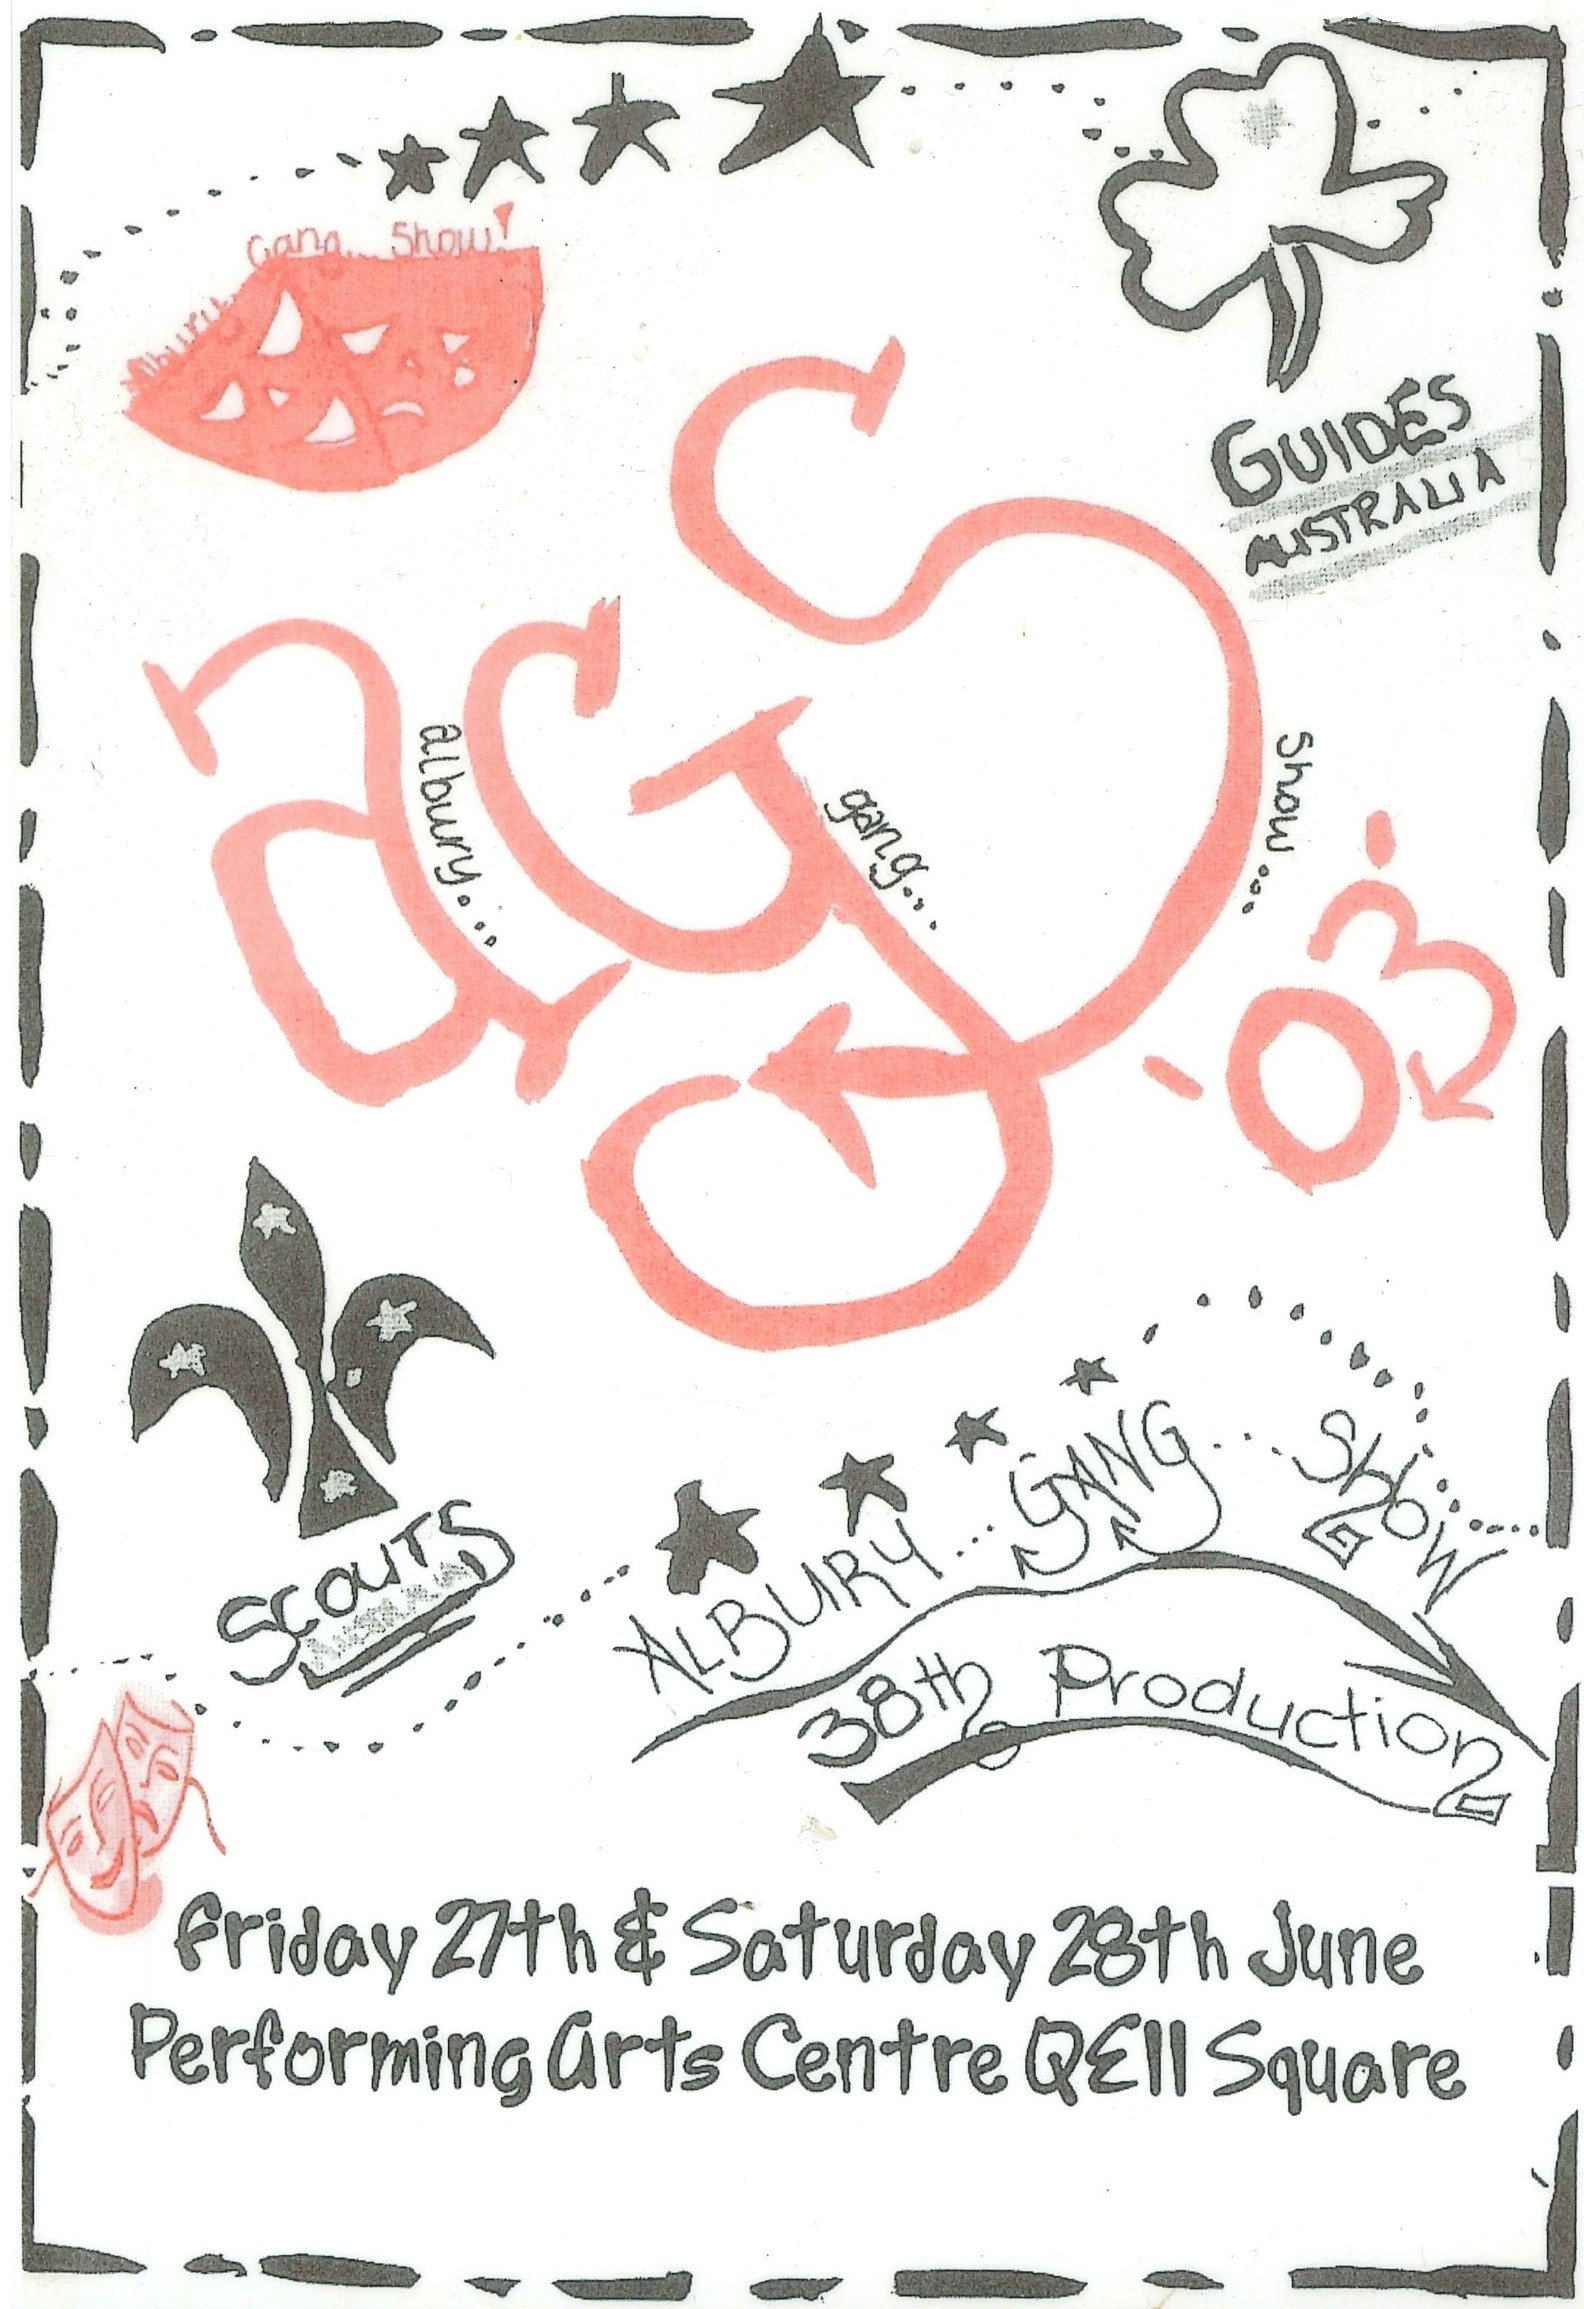 Albury Gang Show!
GUIDES
AUSTRALIA
aGS
albury...
gang...
show...
'03'
SCOUTS
AUSTRALIA
ALBURY... GANG... SHOW
38th Production
Friday 27th & Saturday 28th June
Performing Arts Centre QE11 Square